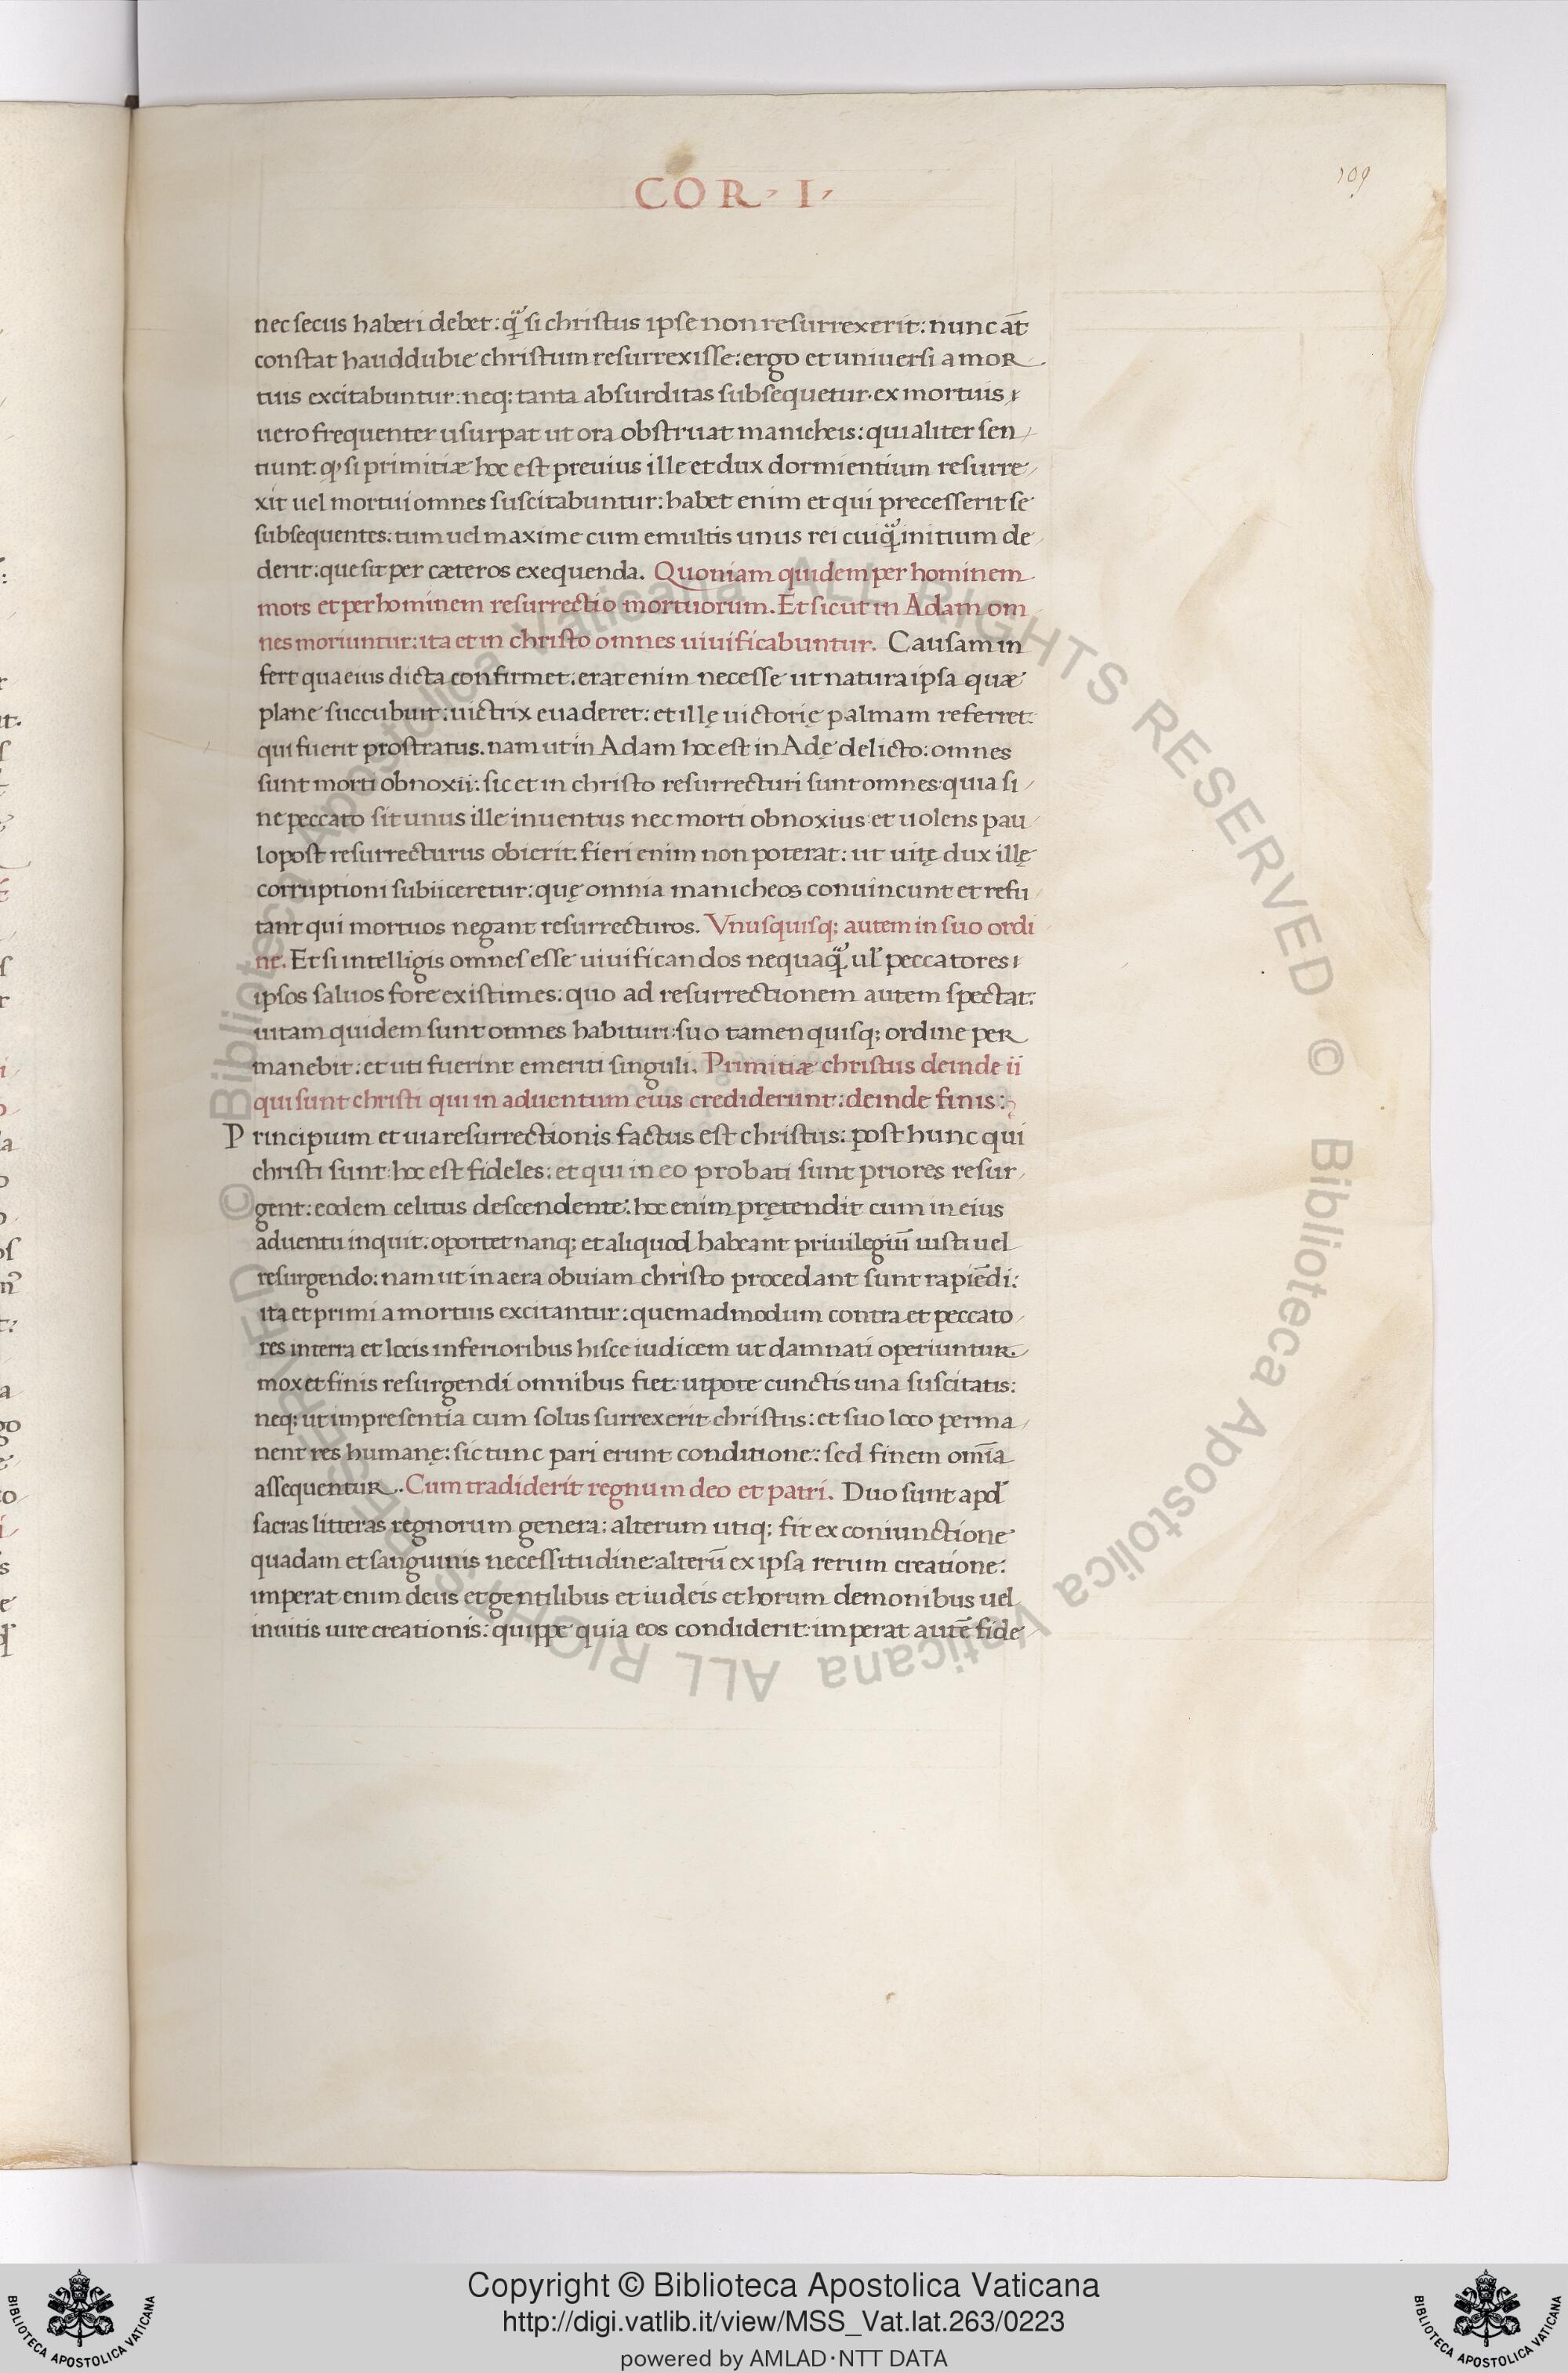 COR · I ·
109
nec secus haberi debet: q̃ si christus ipse non resurrexerit: nunc at̄
constat hauddubie christum resurrexisse: ergo et uniuersi a mor
tuis excitabuntur: neq; tanta absurditas subsequetur. ex mortuis
uero frequenter usurpat ut ora obstruat manicheis: qui aliter sen
tiunt. ꝙ si primitiæ hoc est preuius ille et dux dormientium resurre
xit uel mortui omnes suscitabuntur: habet enim et qui precesserit se
subsequentes: tum uel maxime cum emultis unus rei cuiq̃ initium de
derit: que sit per cæteros exequenda. Quoniam quidem per hominem
mors et per hominem resurrectio mortuorum. Et sicut in Adam om
nes moriuntur: ita et in christo omnes uiuificabuntur. Causam in
fert qua eius dicta confirmet: erat enim necesse ut natura ipsa quæ
plane succubuit: uictrix euaderet: et illę uictorię palmam referret:
qui fuerit prostratus. nam ut in Adam hoc est in Adę delicto: omnes
sunt morti obnoxii: sic et in christo resurrecturi sunt omnes: quia si
ne peccato sit unus ille inuentus nec morti obnoxius et uolens pau
lo post resurrecturus obierit. fieri enim non poterat: ut uitę dux illę
corruptioni subiiceretur: quę omnia manicheos conuincunt et refu
tant qui mortuos negant resurrecturos. Vnusquisq; autem in suo ordi
ne. Et si intelligis omnes esse uiuificandos nequaq̃ ul̃ peccatores
ipsos saluos fore existimes: quo ad resurrectionem autem spectat:
uitam quidem sunt omnes habituri: suo tamen quisq; ordine per
manebit: et uti fuerint emeriti singuli. Primitiæ christus deinde ii
qui sunt christi qui in aduentum eius crediderunt: deinde finis:
Principium et uia resurrectionis factus est christus: post hunc qui
christi sunt: hoc est fideles: et qui in eo probati sunt priores resur
gent: eodem celitus descendente: hoc enim prętendit cum in eius
aduentu inquit. oportet nanq; et aliquod habeant priuilegiū iusti uel
resurgendo: nam ut in aera obuiam christo procedant sunt rapiēdi:
ita et primi a mortuis excitantur: quemadmodum contra et peccato
res interra et locis inferioribus hisce iudicem ut damnati operiuntur.
mox et finis resurgendi omnibus fiet: utpote cunctis una suscitatis:
neq; ut impresentia cum solus surrexerit christus: et suo loco perma
nent res humanę: sic tunc pari erunt conditione: sed finem om̄ia
assequentur. Cum tradiderit regnum deo et patri. Duo sunt apd̃
sacras litteras regnorum genera: alterum utiq; fit ex coniunctione
quadam et sanguinis necessitudine: alterū ex ipsa rerum creatione:
imperat enim deus et gentilibus et iudeis et horum demonibus uel
inuitis iure creationis: quippe quia eos condiderit: imperat autē fide
© Biblioteca Apostolica Vaticana ALL RIGHTS RESERVED © Biblioteca Apostolica Vaticana ALL RIGHTS RESERVED
Copyright © Biblioteca Apostolica Vaticana
http://digi.vatlib.it/view/MSS_Vat.lat.263/0223
powered by AMLAD·NTT DATA
BIBLIOTECA APOSTOLICA VATICANA
BIBLIOTECA APOSTOLICA VATICANA